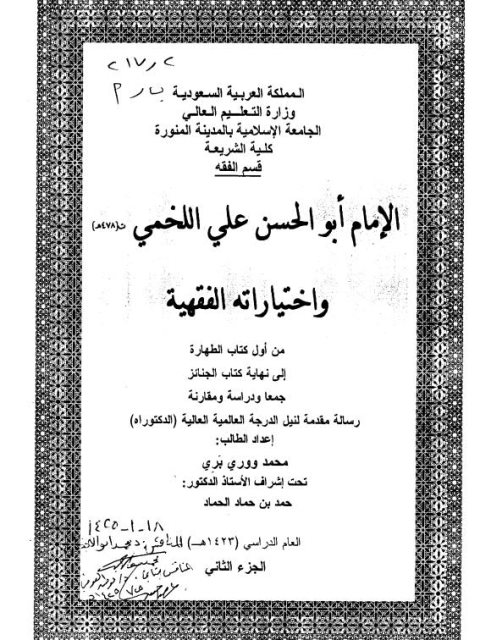 ٢١٧٫٢
ب ا ر م
المملكة العربية السعودية
وزارة التعليم العالي
الجامعة الإسلامية بالمدينة المنورة
كلية الشريعة
قسم الفقه
الإمام أبو الحسن علي اللخمي ت(٤٧٨هـ)
واختياراته الفقهية
من أول كتاب الطهارة
إلى نهاية كتاب الجنائز
جمعا ودراسة ومقارنة
رسالة مقدمة لنيل الدرجة العالمية العالية (الدكتوراه)
إعداد الطالب:
محمد ووري بَري
تحت إشراف الأستاذ الدكتور:
حمد بن حماد الحماد
١٤٢٥-١-١٨
العام الدراسي (١٤٢٣هـ)
الجزء الثاني